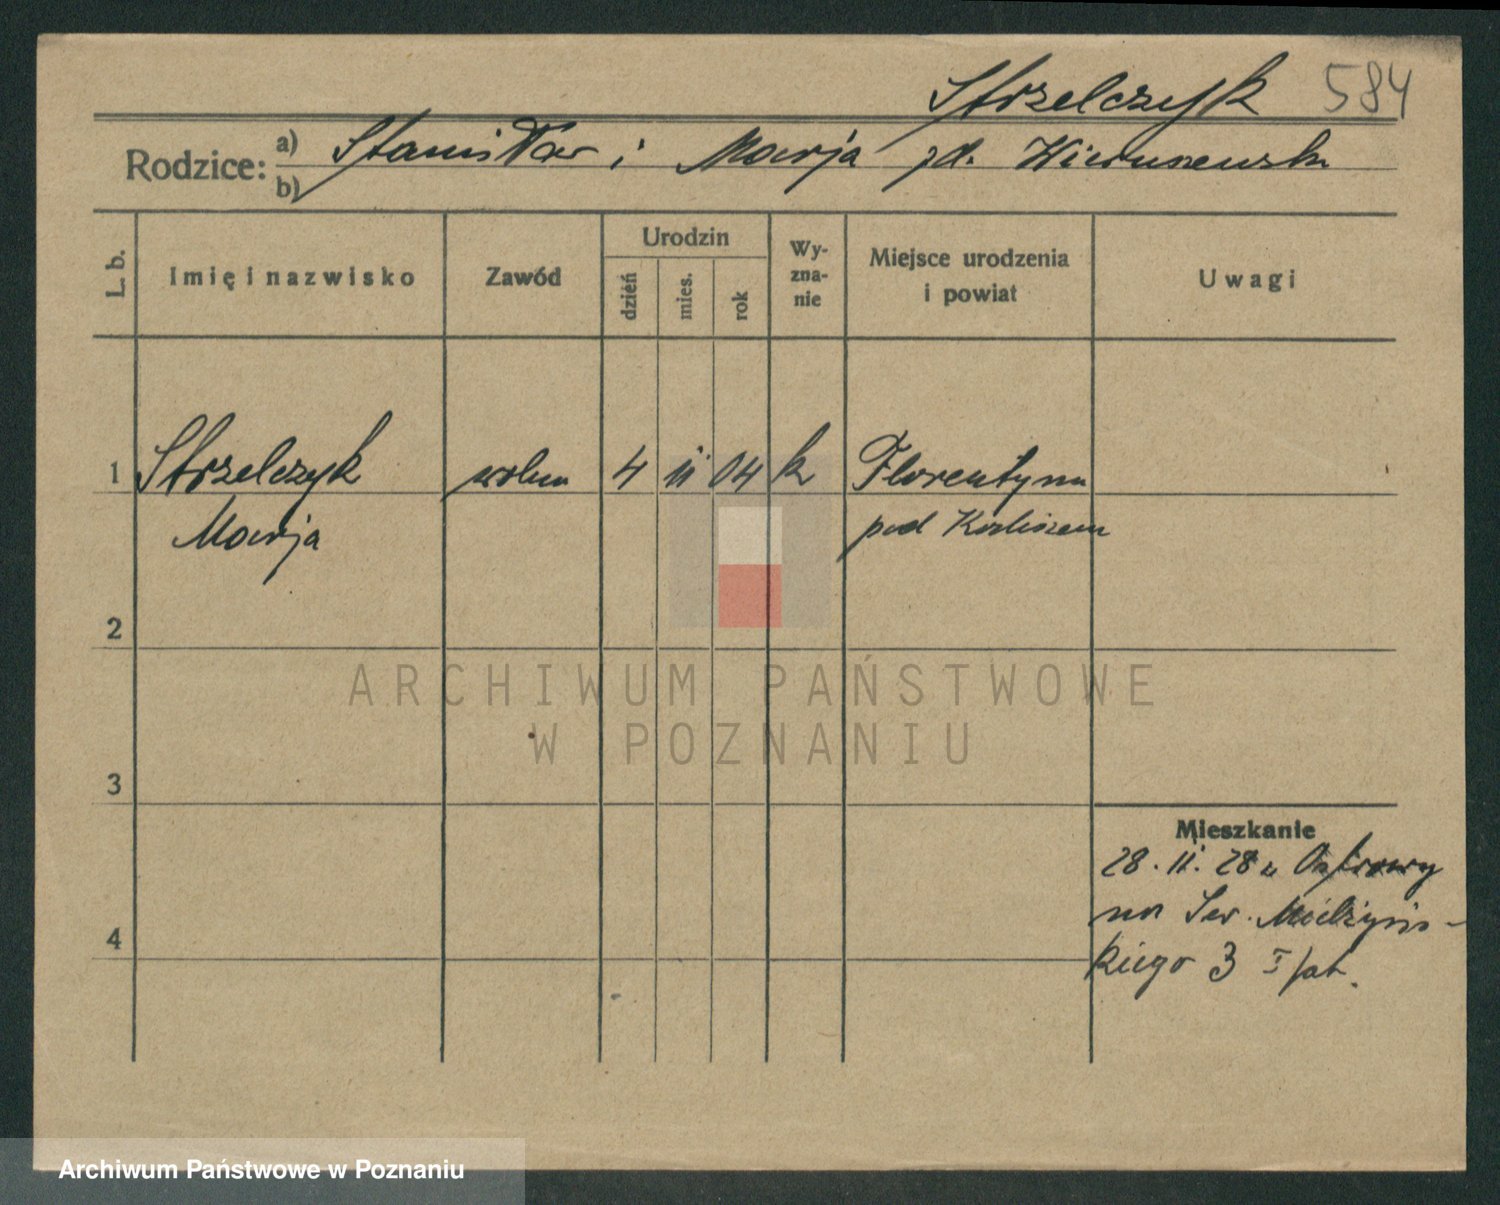 Strzelczyk 584
Rodzice: a) Stanisław i Marja zd. Wieruszewska
b)
L. b.
Imię i nazwisko
Zawód
Urodzin
dzień
mies.
rok
Wy-
zna-
nie
Miejsce urodzenia
i powiat
Uwagi
1 Strzelczyk wolna 4 11 04 k Florentyna
Marja pod Kaliszem
2
3
4
Mieszkanie
28. 11. 28 z Ostrowy
na Sew. Mielżyńs-
kiego 3 I
ARCHIWUM PAŃSTWOWE
W POZNANIU
Archiwum Państwowe w Poznaniu